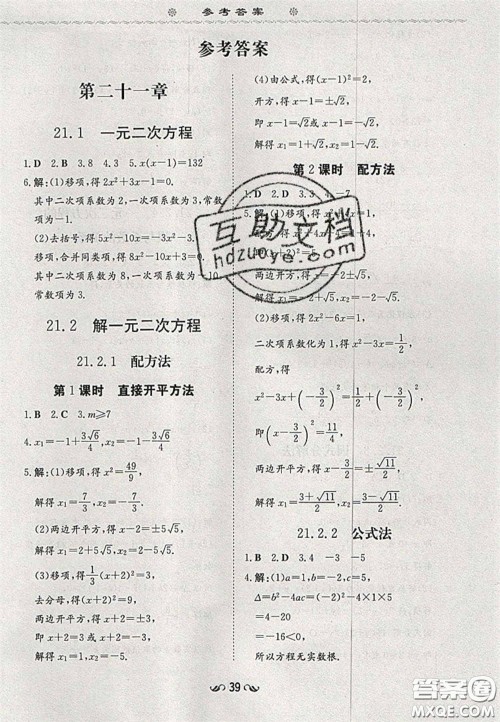 参考答案
参考答案
第二十一章
21.1 一元二次方程
1.D 2.D 3.8 4.3 5.x(x-1)=132
6.解:(1)移项,得2x²+3x-1=0.
其中二次项系数为2,一次项系数为3,常数项
为-1.
(2)去括号,得5x²-10x+3x²+3=0.
移项、合并同类项,得8x²-10x+3=0.
其中二次项系数为8,一次项系数为-10,
常数项为3.
21.2 解一元二次方程
21.2.1 配方法
第1课时 直接开平方法
1.B 2.C 3.m⩾7
4.x₁=-1+3√6/4,x₂=-1-3√6/4
5.解:(1)移项,得x²=49/9,
解得x₁=7/3,x₂=-7/3.
(2)两边开平方,得x-2=±√5,
解得x₁=2+√5,x₂=2-√5.
(3)移项,得1/3(x+2)²=3,
去分母,得(x+2)²=9,
两边开平方,得x+2=±3,
即x+2=3或x+2=-3,
解得x₁=1,x₂=-5.
(4)由公式,得(x-1)²=2,
开方,得x-1=±√2,
即x-1=√2或x-1=-√2,
解得x₁=1+√2,x₂=1-√2.
第2课时 配方法
1.D 2.D 3.
5.解:(1)移项,得
配方,得
即
两边开方,得x+2=±√5,
解得x₁=-2+√5,x₂=-2-√5.
(2)移项,得2x²-6x=1,
二次项系数化为1,得x²-3x=1/2,
配方,得
x²-3x+(-3/2)²=1/2+(-3/2)²,
即(x-3/2)²=11/4,
两边开平方,得x-3/2=±√11/2,
解得x₁=3/2+√11/2,x₂=3/2-√11/2.
21.2.2 公式法
1.B 2.D 3.4 -3 -5
4.解:(1)a=1,b=-2,c=5,
Δ=b²-4ac=(-2)²-4×1×5
=4-20
=-16<0,
所以方程无实数根.
39
互助文档
hdzuoye.com
答案圈
MXQE.COM